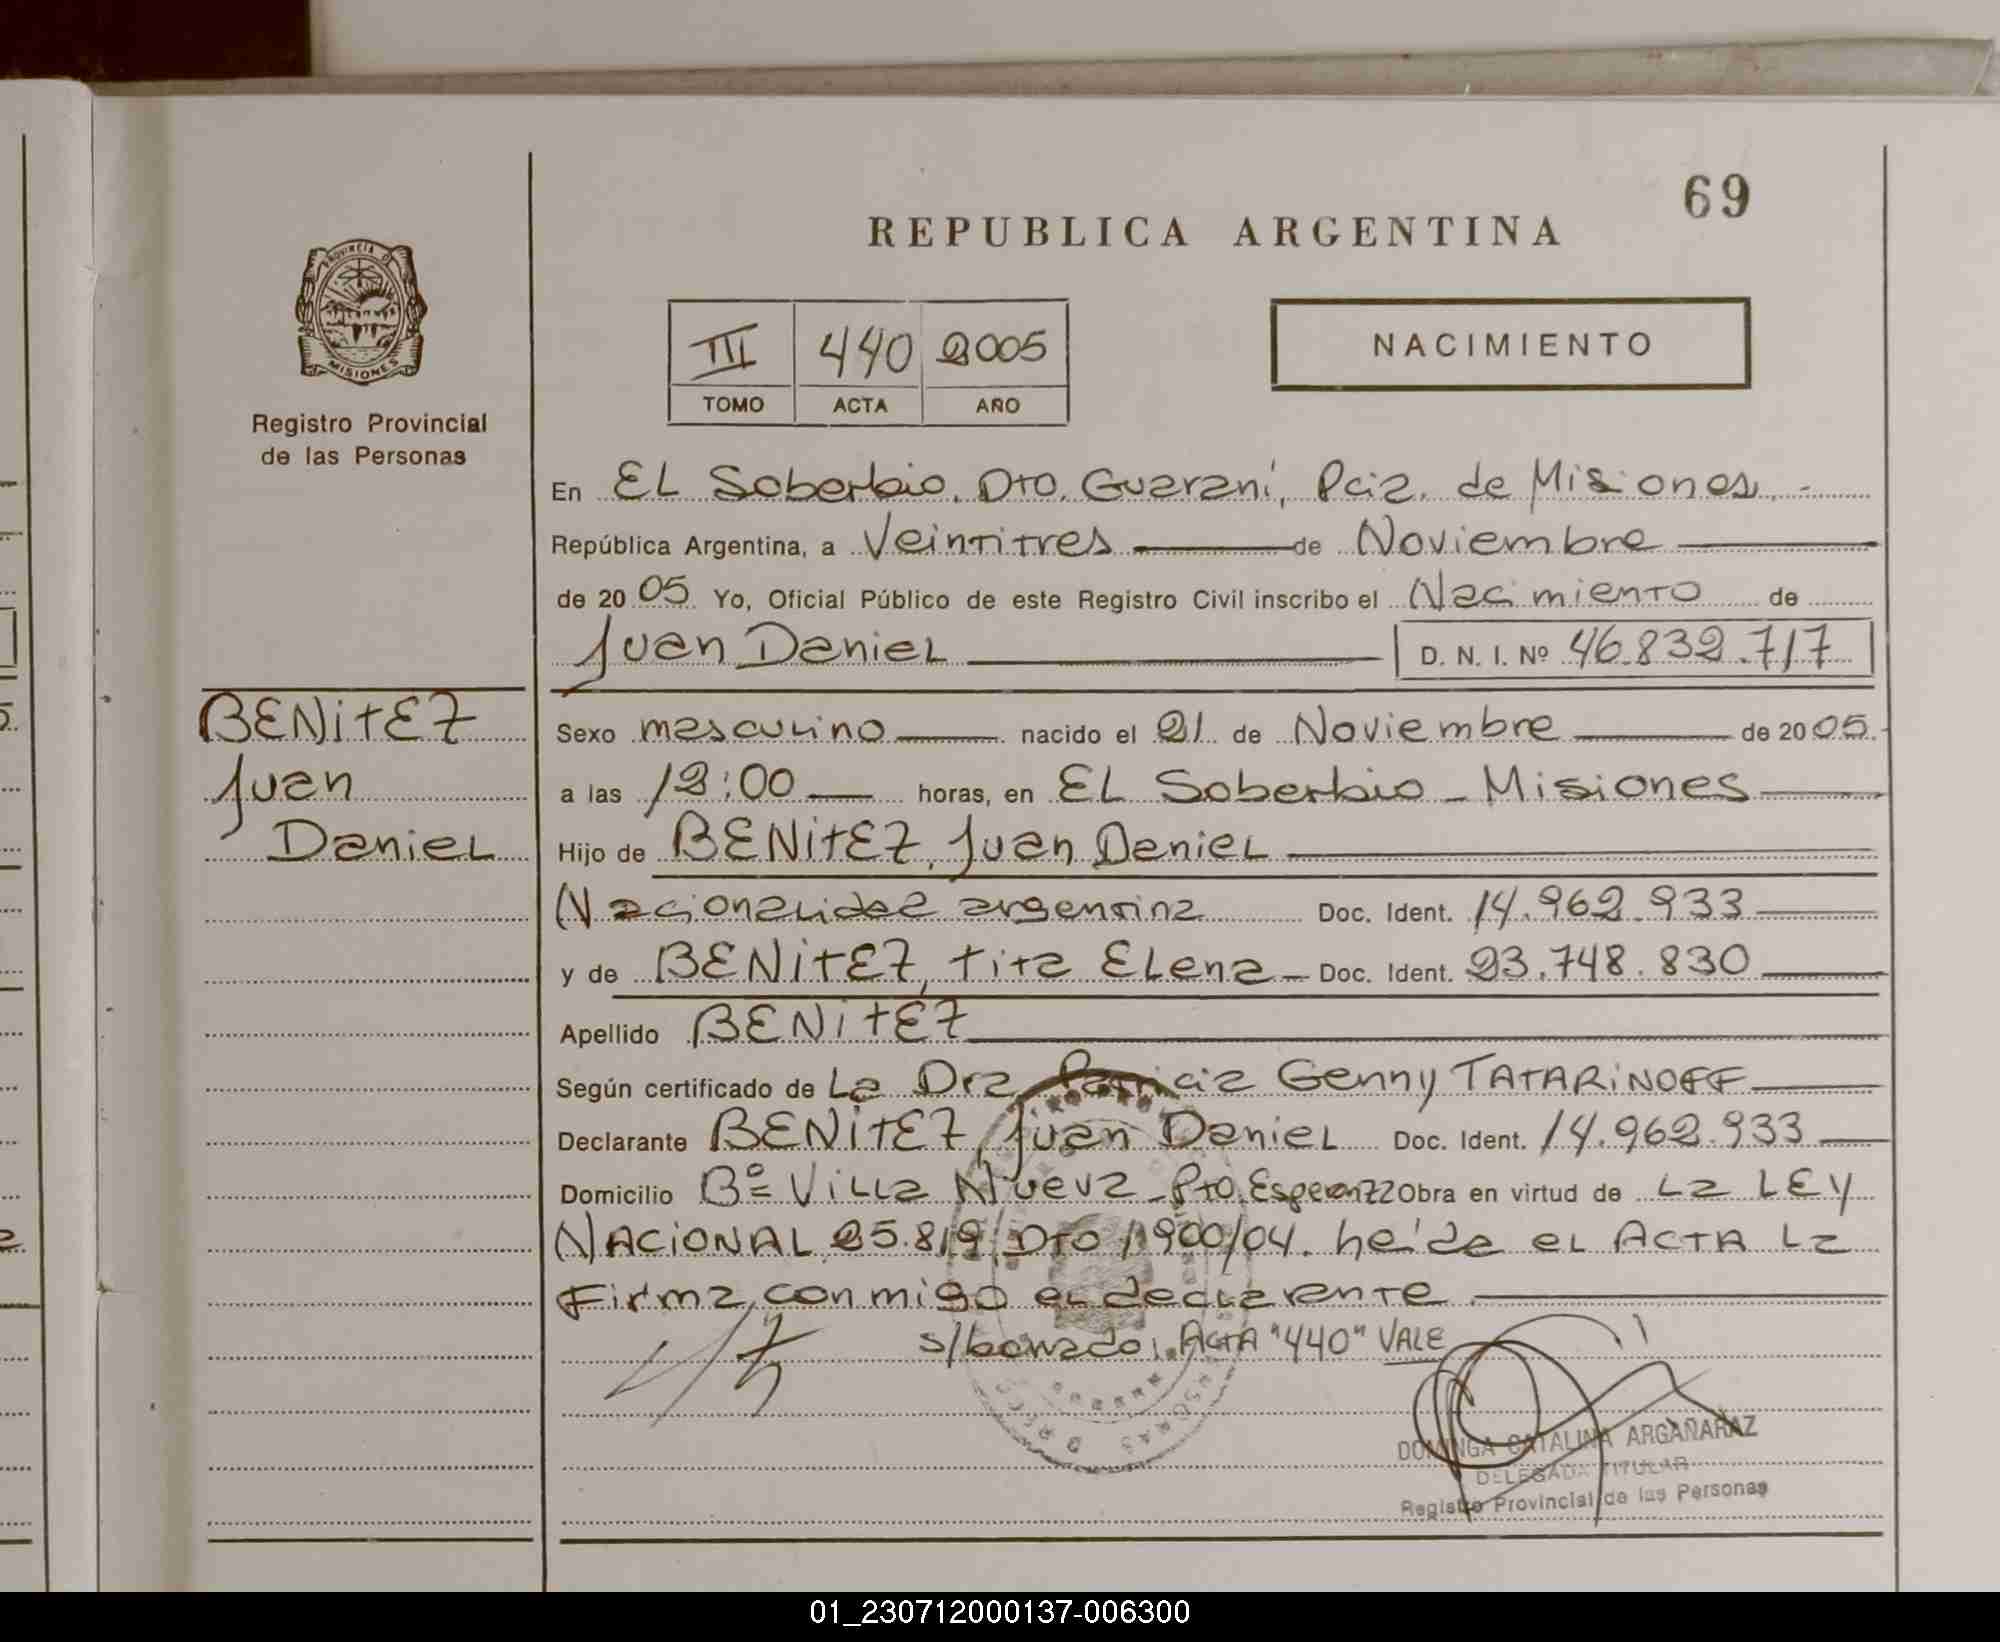 69
REPUBLICA ARGENTINA
PROVINCIA DE
MISIONES
Registro Provincial
de las Personas
III 440 2005
TOMO ACTA AÑO
NACIMIENTO
En EL Soberbio. Dto. Guaraní, Pcia. de Misiones.-
República Argentina, a Veintitres de Noviembre
de 2005 Yo, Oficial Público de este Registro Civil inscribo el Nacimiento de
Juan Daniel D. N. I. Nº 46.832.717
BENITEZ
Juan
Daniel
Sexo masculino nacido el 21 de Noviembre de 2005.
a las 12:00 horas, en EL Soberbio - Misiones
Hijo de BENITEZ, Juan Daniel
Nacionalidad argentina Doc. Ident. 14.962.933
y de BENITEZ, Tita Elena - Doc. Ident. 23.748.830
Apellido BENITEZ
Según certificado de La Dra Patricia Genny TATARINOFF
Declarante BENITEZ, Juan Daniel Doc. Ident. 14.962.933
Domicilio Bº Villa Nueva - Pto. Esperanza Obra en virtud de La LEY
NACIONAL 25.819, Dto 1900/04. heída el ACTA La
Firma conmigo el declarante.
s/borrado: ACTA "440" VALE
DOMINGA CATALINA ARGAÑARAZ
DELEGADA TITULAR
Registro Provincial de las Personas
01_230712000137-006300